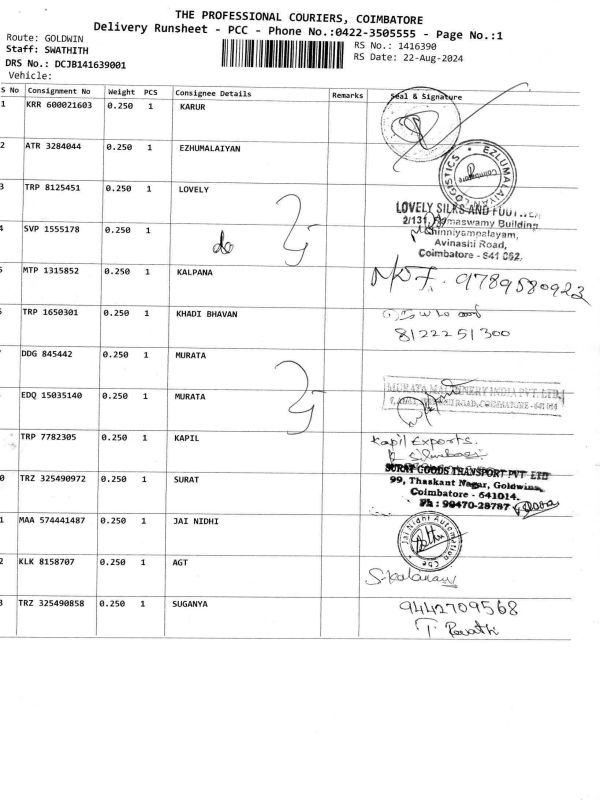 THE PROFESSIONAL COURIERS, COIMBATORE
Delivery Runsheet - PCC - Phone No.:0422-3505555 - Page No.:1
Route: GOLDWIN
Staff: SWATHITH
RS No.: 1416390
RS Date: 22-Aug-2024
DRS No.: DCJB141639001
Vehicle:
S No Consignment No Weight PCS Consignee Details Remarks Seal & Signature
1 KRR 600021603 0.250 1 KARUR
2 ATR 3284044 0.250 1 EZHUMALAIYAN
EZLUMALAIYAN LOGISTICS
Coimbatore
3 TRP 8125451 0.250 1 LOVELY
LOVELY SILKS AND
2/131, Ramaswamy Building
Chinniyampalayam,
Avinashi Road,
Coimbatore - 641 062.
4 SVP 1555178 0.250 1
do
5 MTP 1315852 0.250 1 KALPANA
9789580923
TRP 1650301 0.250 1 KHADI BHAVAN
8122251300
DDG 845442 0.250 1 MURATA
EDQ 15035140 0.250 1 MURATA
MURATA MACHINERY INDIA PVT. LTD.
ROAD, COIMBATORE - 641 014
TRP 7782305 0.250 1 KAPIL
Kapil Exports.
0 TRZ 325490972 0.250 1 SURAT
SURAT GOODS TRANSPORT PVT LTD
99, Thaskant Nagar, Goldwins,
Coimbatore - 641014.
Ph : 99470-28787
1 MAA 574441487 0.250 1 JAI NIDHI
Jai Nidhi Automation
Cbe
2 KLK 8158707 0.250 1 AGT
3 TRZ 325490858 0.250 1 SUGANYA
9442709568
T. Revathi